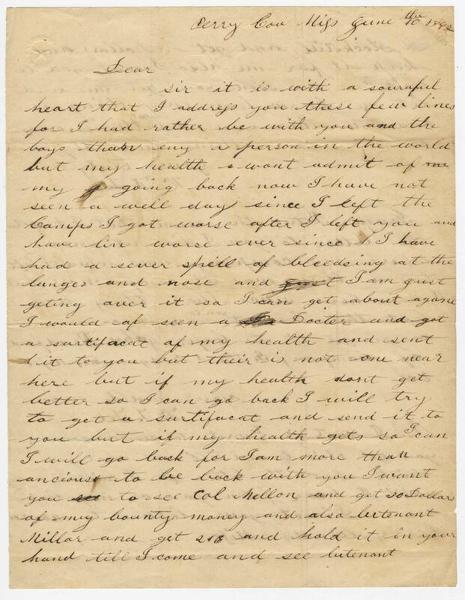 Perry Cou Miss June the 10 1862
Dear
sir it is with a souraful
heart that I address you these few lines
for I had rather be with you and the
boys than eny a person in the world
but my health wont admit of me
my going back now I have not
seen a well day since I left the
Camps I got worse after I left you and
have bin worse ever since I have
had a sever spell of bleedsing at the
lunges and nose and just I am gust
geting over it so I can get about agane
I would of seen a Docter and got
a surtifacat of my health and sent
it to you but their is not one near
here but if my health dont get
better so I can go back I will try
to get a surtifacat and send it to
you but if my health gets so I can
I will go back for I am more than
ancious to be back with you I want
you to see Col Mellon and get 50 Dollar
of my bounty money and also leutenant
Millar and get and hold it in your
hand till I come and see lutenant